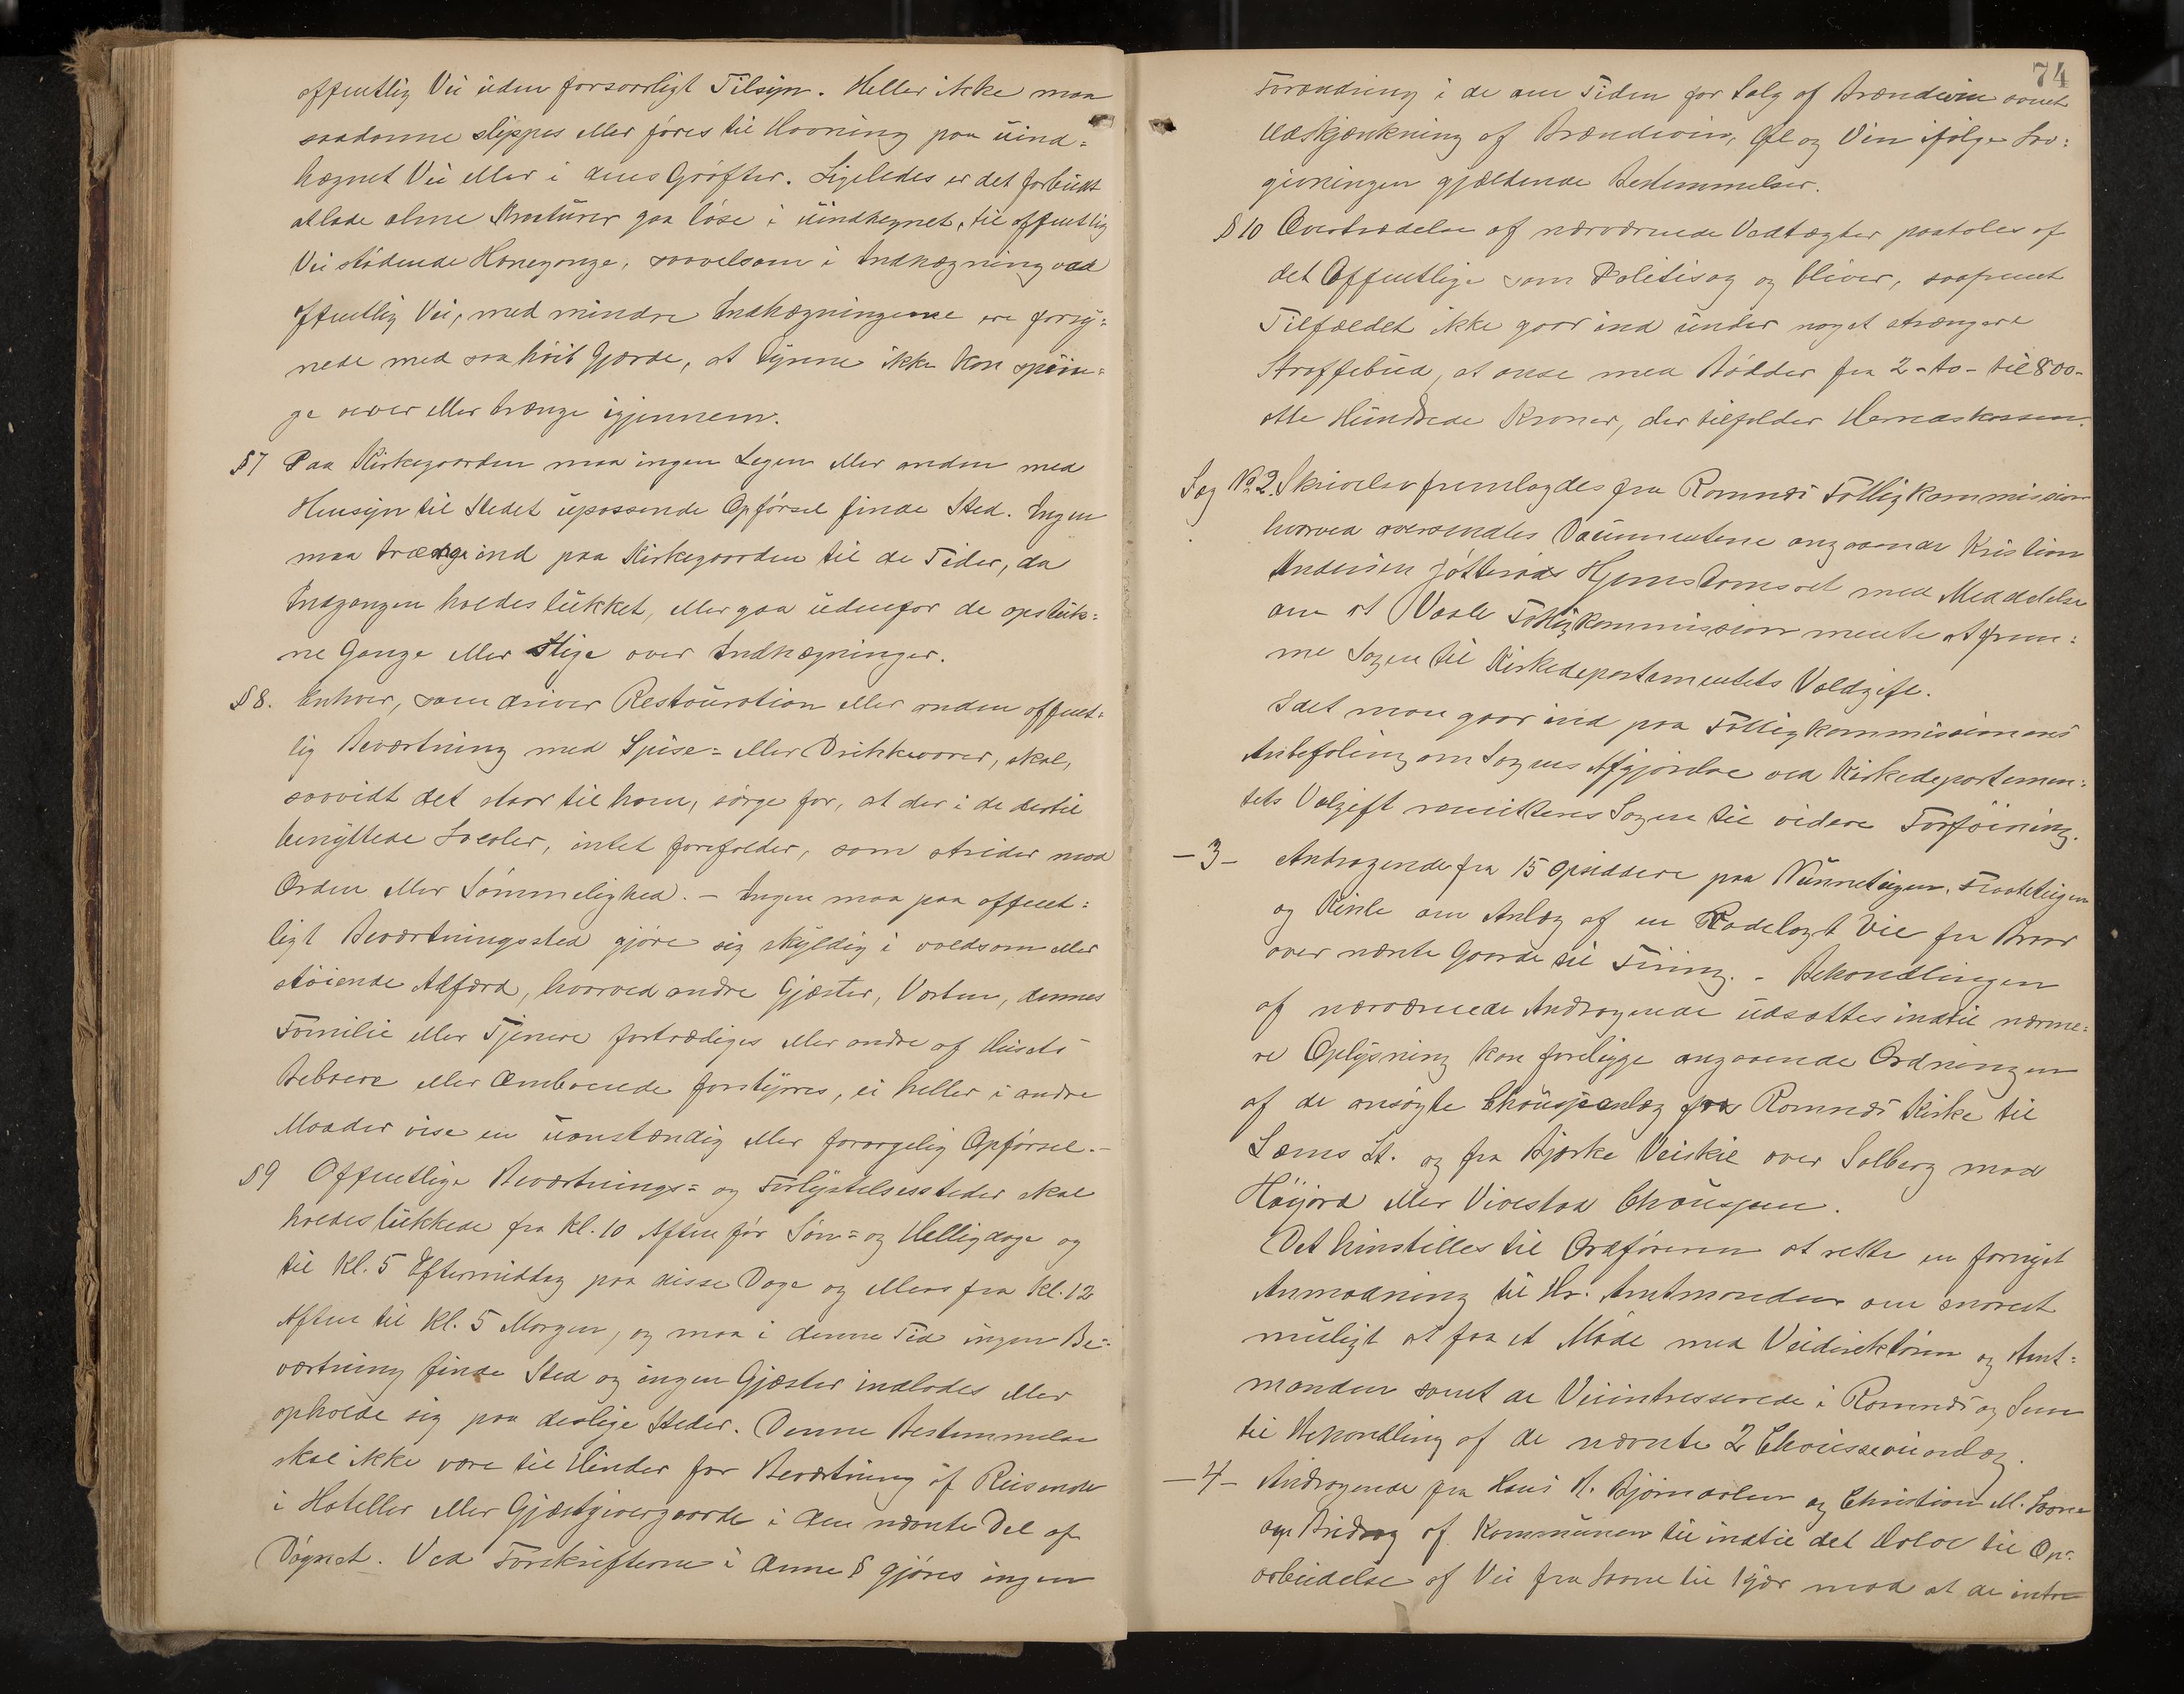 offentlig Vei uden forsvarligt Tilsyn. Heller ikke maa
saadanne slippes eller føres til Havning paa uind=
hægnet Vei eller i dens Grøfter. Ligeledes er det forbudt
at lade olme Kreaturer gaa løse i uindhegnet, til offentlig
Vei stødende Havegange, saavelsom i Indhægning ved
offentlig Vei, med mindre Indhægningerne ere forsy=
nede med saa høit Gjærde, at Dyrene ikke kan sprin=
ge over eller trænge igjennem.
§7 Paa Kirkegaarden maa ingen Legen eller anden med
Hensyn til Stedet upassende Opførsel finde Sted. Ingen
maa trænge ind paa Kirkegaarden til de Tider, da
Indgangen holdes lukket, eller gaa udenfor de opstuk=
ne Gange eller stige over Indhægninger.
§8. Enhver, som driver Restauration eller anden offent=
lig Beværtning med Spise= eller Drikkevarer, skal,
saavidt det staar til ham, sørge for, at der i de dertil
benyttede Locoler, intet forefalder, som strider mod
Orden eller Sømmelighed. – Ingen maa paa offent=
ligt Beværtningssted gjøre sig skyldig i voldsom eller
støiende Adfærd, hvorved andre Gjæster, Værten, dennes
Familie eller Tjenere fortrædiges eller andre af Husets
Beboere eller Omboende forstyrres, ei heller i andre
Maader vise en uanstændig eller forargelig Opførsel. –
§9 Offentlige Beværtnings= og Forlystelsessteder skal
holdes lukkede fra Kl. 10 Aften før Søn= og Helligdage og
til Kl. 5 Eftermiddag paa disse Dage og ellers fra Kl. 12
Aften til Kl. 5 Morgen, og maa i denne Tid ingen Be=
værtning finde Sted og ingen Gjæster indlades eller
opholde sig paa deslige Steder. Denne Bestemmelse
skal ikke være til Hinder for Beværtning af Reisende
i Hoteller eller Gjæstgivergaarde i den nævnte Del af
Døgnet. Ved Forskrifterne i denne § gjøres ingen
74
Forandring i de om Tiden for Salg af Brændevin samt
Udskjænkning af Brændevin, Øl og Vin ifølge Lov=
givningen gjældende Bestemmelser.
§10 Overtrædelse af nærværende Vedtægter paatales af
det Offentlige som Politisag og bliver, saafremt
Tilfældet ikke gaar ind under noget strængere
Straffebud, at anse med Bødder fra 2 - to - til 800 -
otte Hundrede Kroner, der tilfalder Herredskassen.
Sag No 2. Skrivelse fremlagdes fra Ramnæs Fattigkommission
hvorved oversendtes Documentene angaaende Kristian
Andersen Jøtterøds Hjemstamsret med Meddelelse
om at Vaale Fattigkommission mente at frem=
me Sagen til Kirkedepartementets Voldgift.
Idet man gaar ind paa Fattigkommissionens
Anbefaling om Sagens Afgjørelse ved Kirkedepartemen=
tets Volgift remitteres Sagen til videre Forføining.
–3– Andragende fra 15 Opsiddere paa
og om Anlæg af en Rodelagt Vei fra
over nævnte Gaarde til – Behandlingen
af nærværende Andragende udsættes indtil nærme=
re Oplysning kan foreligge angaaende Ordningen
af de ansøgte Chausseanlæg fra Ramnæs Kirke til
Sems St. og fra Bjerke Veiskil over Solberg mod
Høijord eller Vivestad Chausseen.
Det henstilles til Ordføreren at rette en fornyet
Anmodning til Hr. Amtmanden om snarest
muligt at faa et Møde med Veidirektøren og Amt=
manden samt de Veiintresserede i Ramnæs og Sem
til Behandling af de nævnte 2 Chausseveianlæg.
–4– Andragende fra Hans A. Bjørndalen og Christian M.
om Bidrag af Kommunen til indtil det Halve til Op=
arbeidelse af Vei fra til mod at de